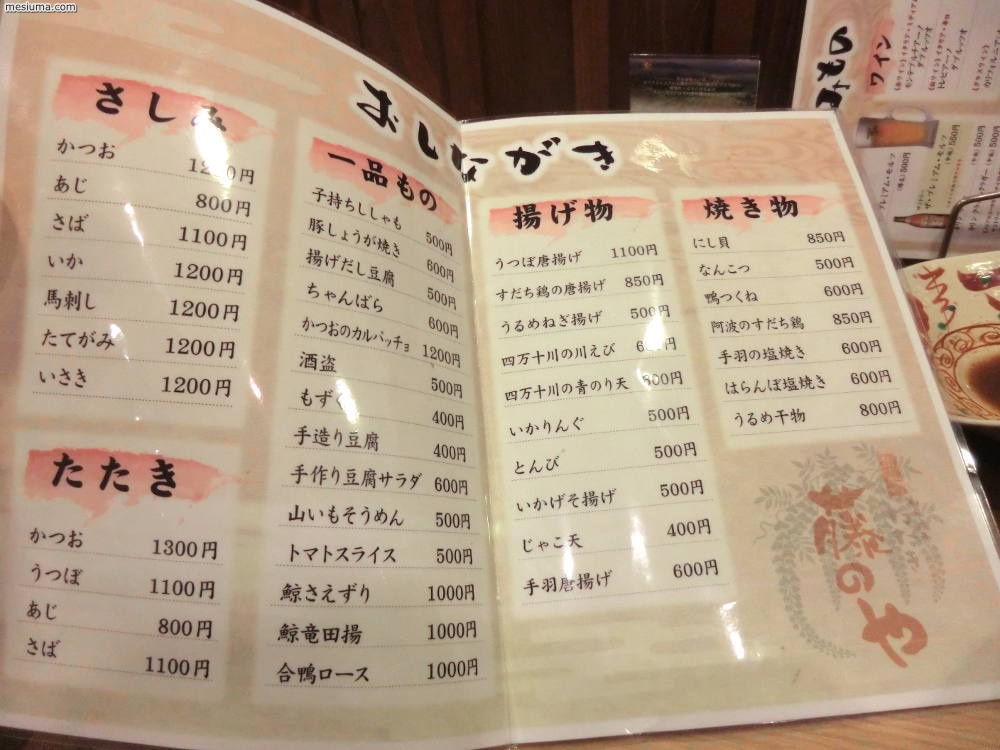 mesiuma.com
おしながき
さしみ
かつお 1200円
あじ 800円
さば 1100円
いか 1200円
馬刺し 1200円
たてがみ 1200円
いさき 1200円
たたき
かつお 1300円
うつぼ 1100円
あじ 800円
さば 1100円
一品もの
子持ちししゃも 500円
豚しょうが焼き 600円
揚げだし豆腐 500円
ちゃんばら 600円
かつおのカルパッチョ 1200円
酒盗 500円
もずく 400円
手造り豆腐 400円
手作り豆腐サラダ 600円
山いもそうめん 500円
トマトスライス 500円
鯨さえずり 1000円
鯨竜田揚 1000円
合鴨ロース 1000円
揚げ物
うつぼ唐揚げ 1100円
すだち鶏の唐揚げ 850円
うるめねぎ揚げ 500円
四万十川の川えび 600円
四万十川の青のり天 800円
いかりんぐ 500円
とんび 500円
いかげそ揚げ 500円
じゃこ天 400円
手羽唐揚げ 600円
焼き物
にし貝 850円
なんこつ 500円
鴨つくね 600円
阿波のすだち鶏 850円
手羽の塩焼き 600円
はらんぼ塩焼き 600円
うるめ干物 800円
藤のや
ワイン